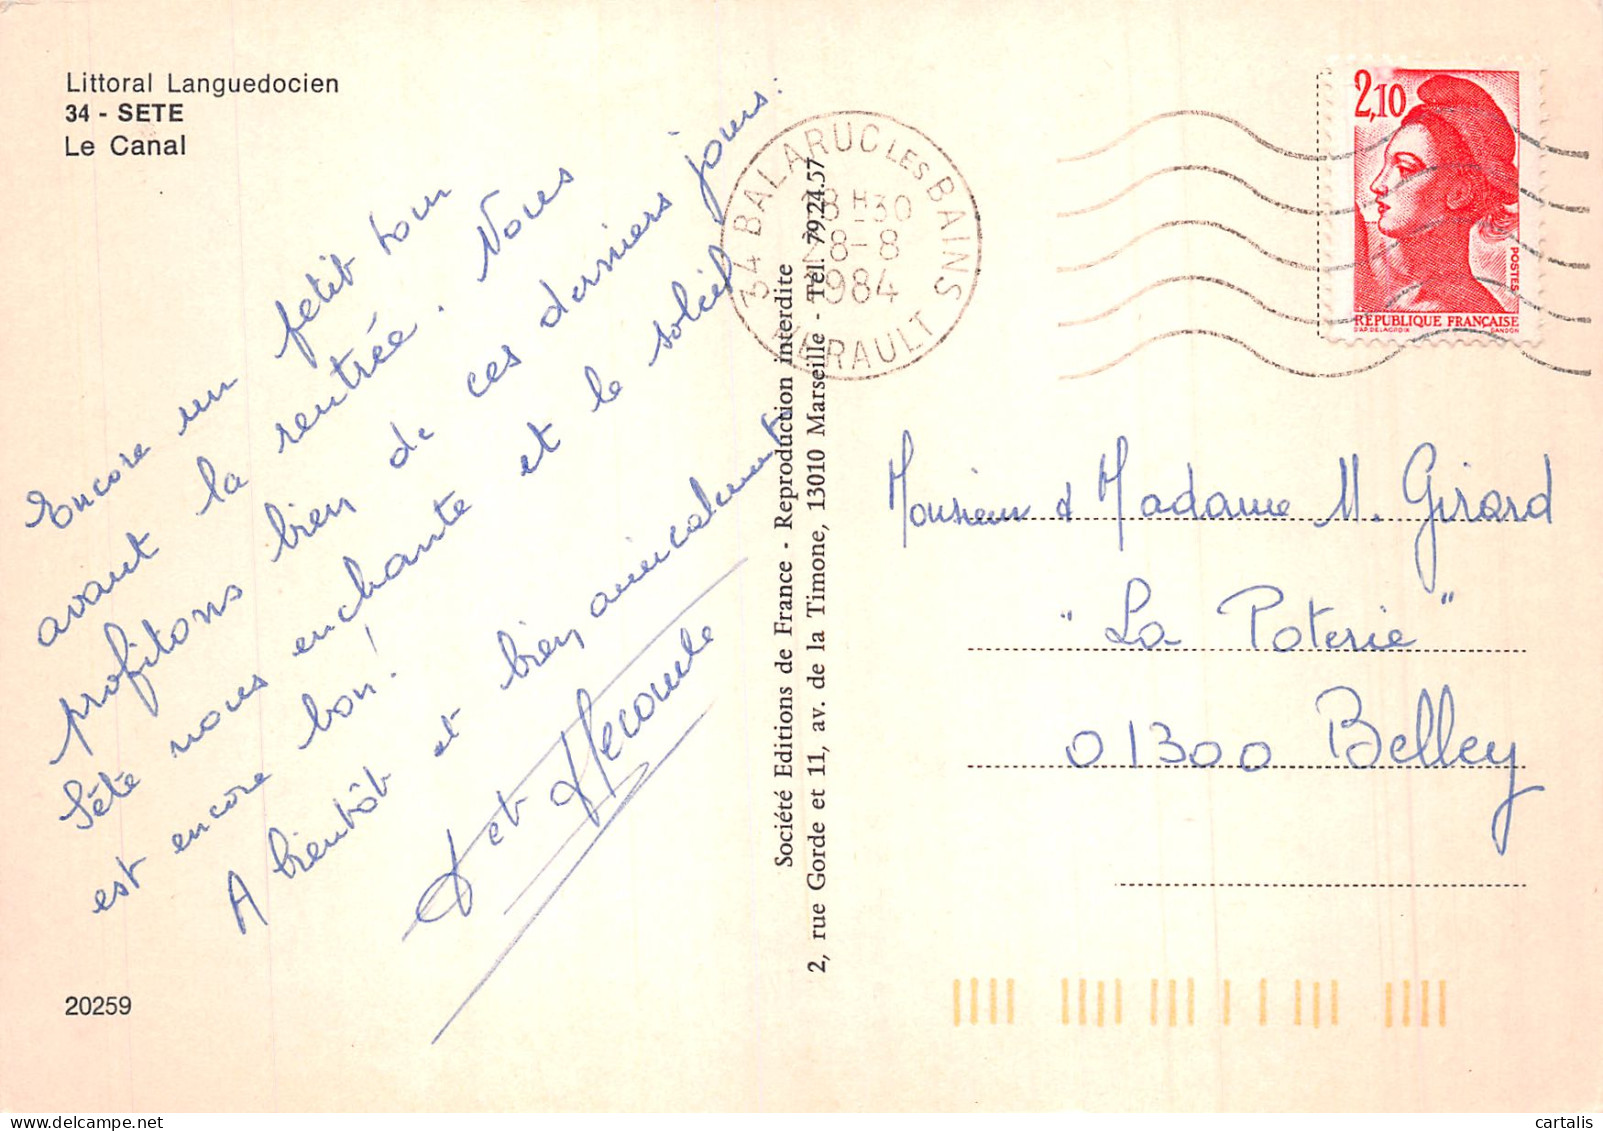 Littoral Languedocien
34 - SETE
Le Canal
Encore un petit tour
avant la rentrée. Nous
profitons bien de ces derniers jours.
Sète nous enchante et le soleil
est encore bon!
A bientôt et bien amicalement
20259
Société Editions de France - Reproduction interdite
2, rue Gorde et 11, av. de la Timone, 13010 Marseille - Tél. 79.24.57
34 BALARUC LES BAINS
8H30
8-8
1984
HERAULT
2,10
POSTES
RÉPUBLIQUE FRANÇAISE
D'AP. DELACROIX GANDON
Monsieur & Madame M. Girard
"La Poterie"
01300 Belley
cartalis